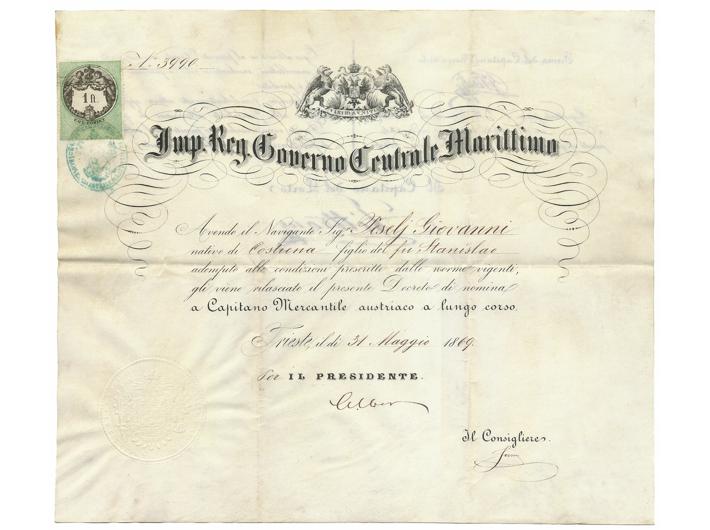 N.º 3990
1 fl.
VIRIBUS UNITIS
Imp. Reg. Governo Centrale Marittimo
Avendo il Navigante Sig.r Peselj Giovanni
nativo di Costrena figlio del fu Stanislao
adempito alle condizioni prescritte dalle norme vigenti,
gli viene rilasciato il presente Decreto di nomina
a Capitano Mercantile austriaco a lungo corso.
Trieste, il dì 31 Maggio 1869.
Per IL PRESIDENTE.
Il Consigliere